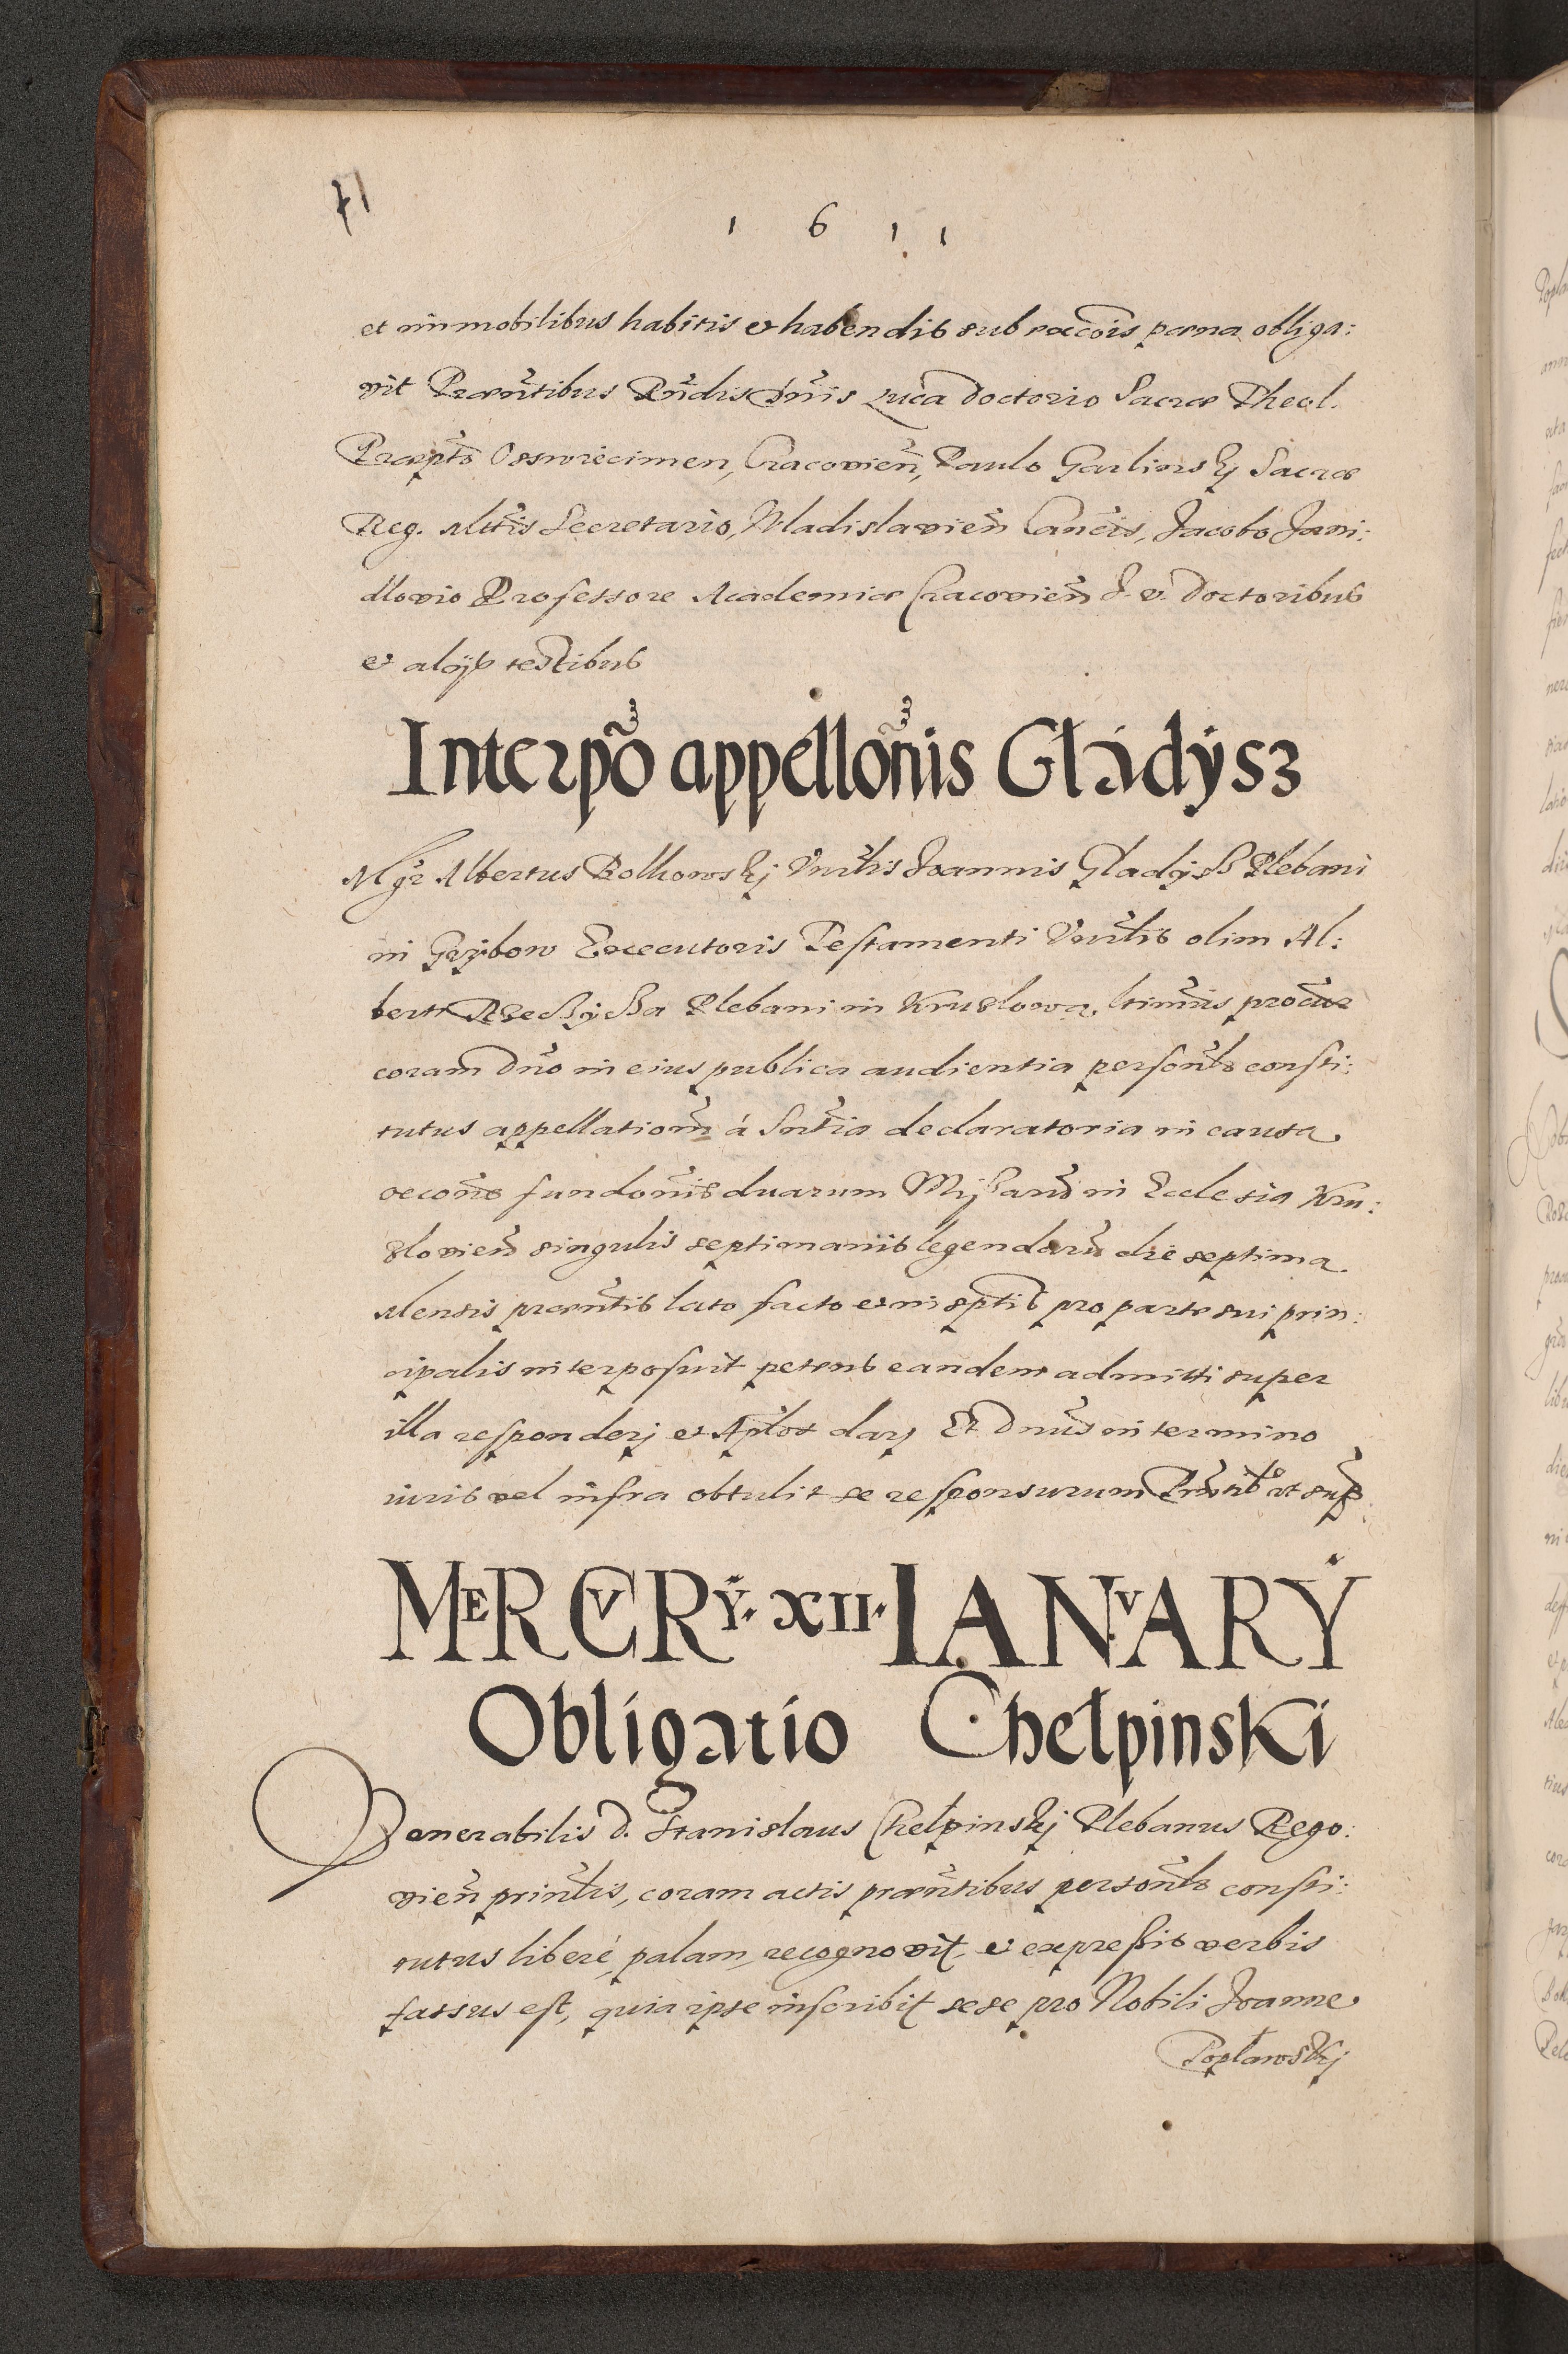 71
1 6 1 1
et immobilibus habitis et habendis sub excōis pæna obliga:
vit Præntibus Rndis Dnis Luca Doctorio Sacræ Theol.
Præpto Osswiecimen, Cracovien, Paulo Garlinskj Sacræ
Reg. Mttis Secretario, Wladislavien Cancis, Jacobo Jani:
dlovio Professore Academiæ Cracovien J. v. Doctoribus
et alijs testibus
Interpõ appellonis Gładysz
Mgr Albertus Bolkowskj Vnrlis Joannis Gladyß Plebani
in Grybow Executoris Testamenti Vnrlis olim Al:
berti Plebani in Kruslowa, ltimus procur
coram Dno in eius publica audientia personlr consti:
tutus appellationem á Sntia declaratoria in causa
fundonis duarum Mißarum in Ecclesia Kru:
slovien singulis septimanis legendarum die septima
Mensis præntis lato facto et in sptis pro parte sui prin:
cipalis interposuit petens eandem admitti super
illa responderj et Aplos darj Et Dnus in termino
iuris vel infra obtulit se responsurum Prntibus ut supra
MERCVRY. XII. IANVARY
Obligatio Chełpinski
Venerabilis D. Stanislaus Chełpinskj Plebanus Rego:
vien printlis, coram actis præntibus personlr consti:
tutus liberé, palam, recognovit, et expreßis verbis
fassus est, quia ipse inscribit sese pro Nobili Joanne
Popławskj